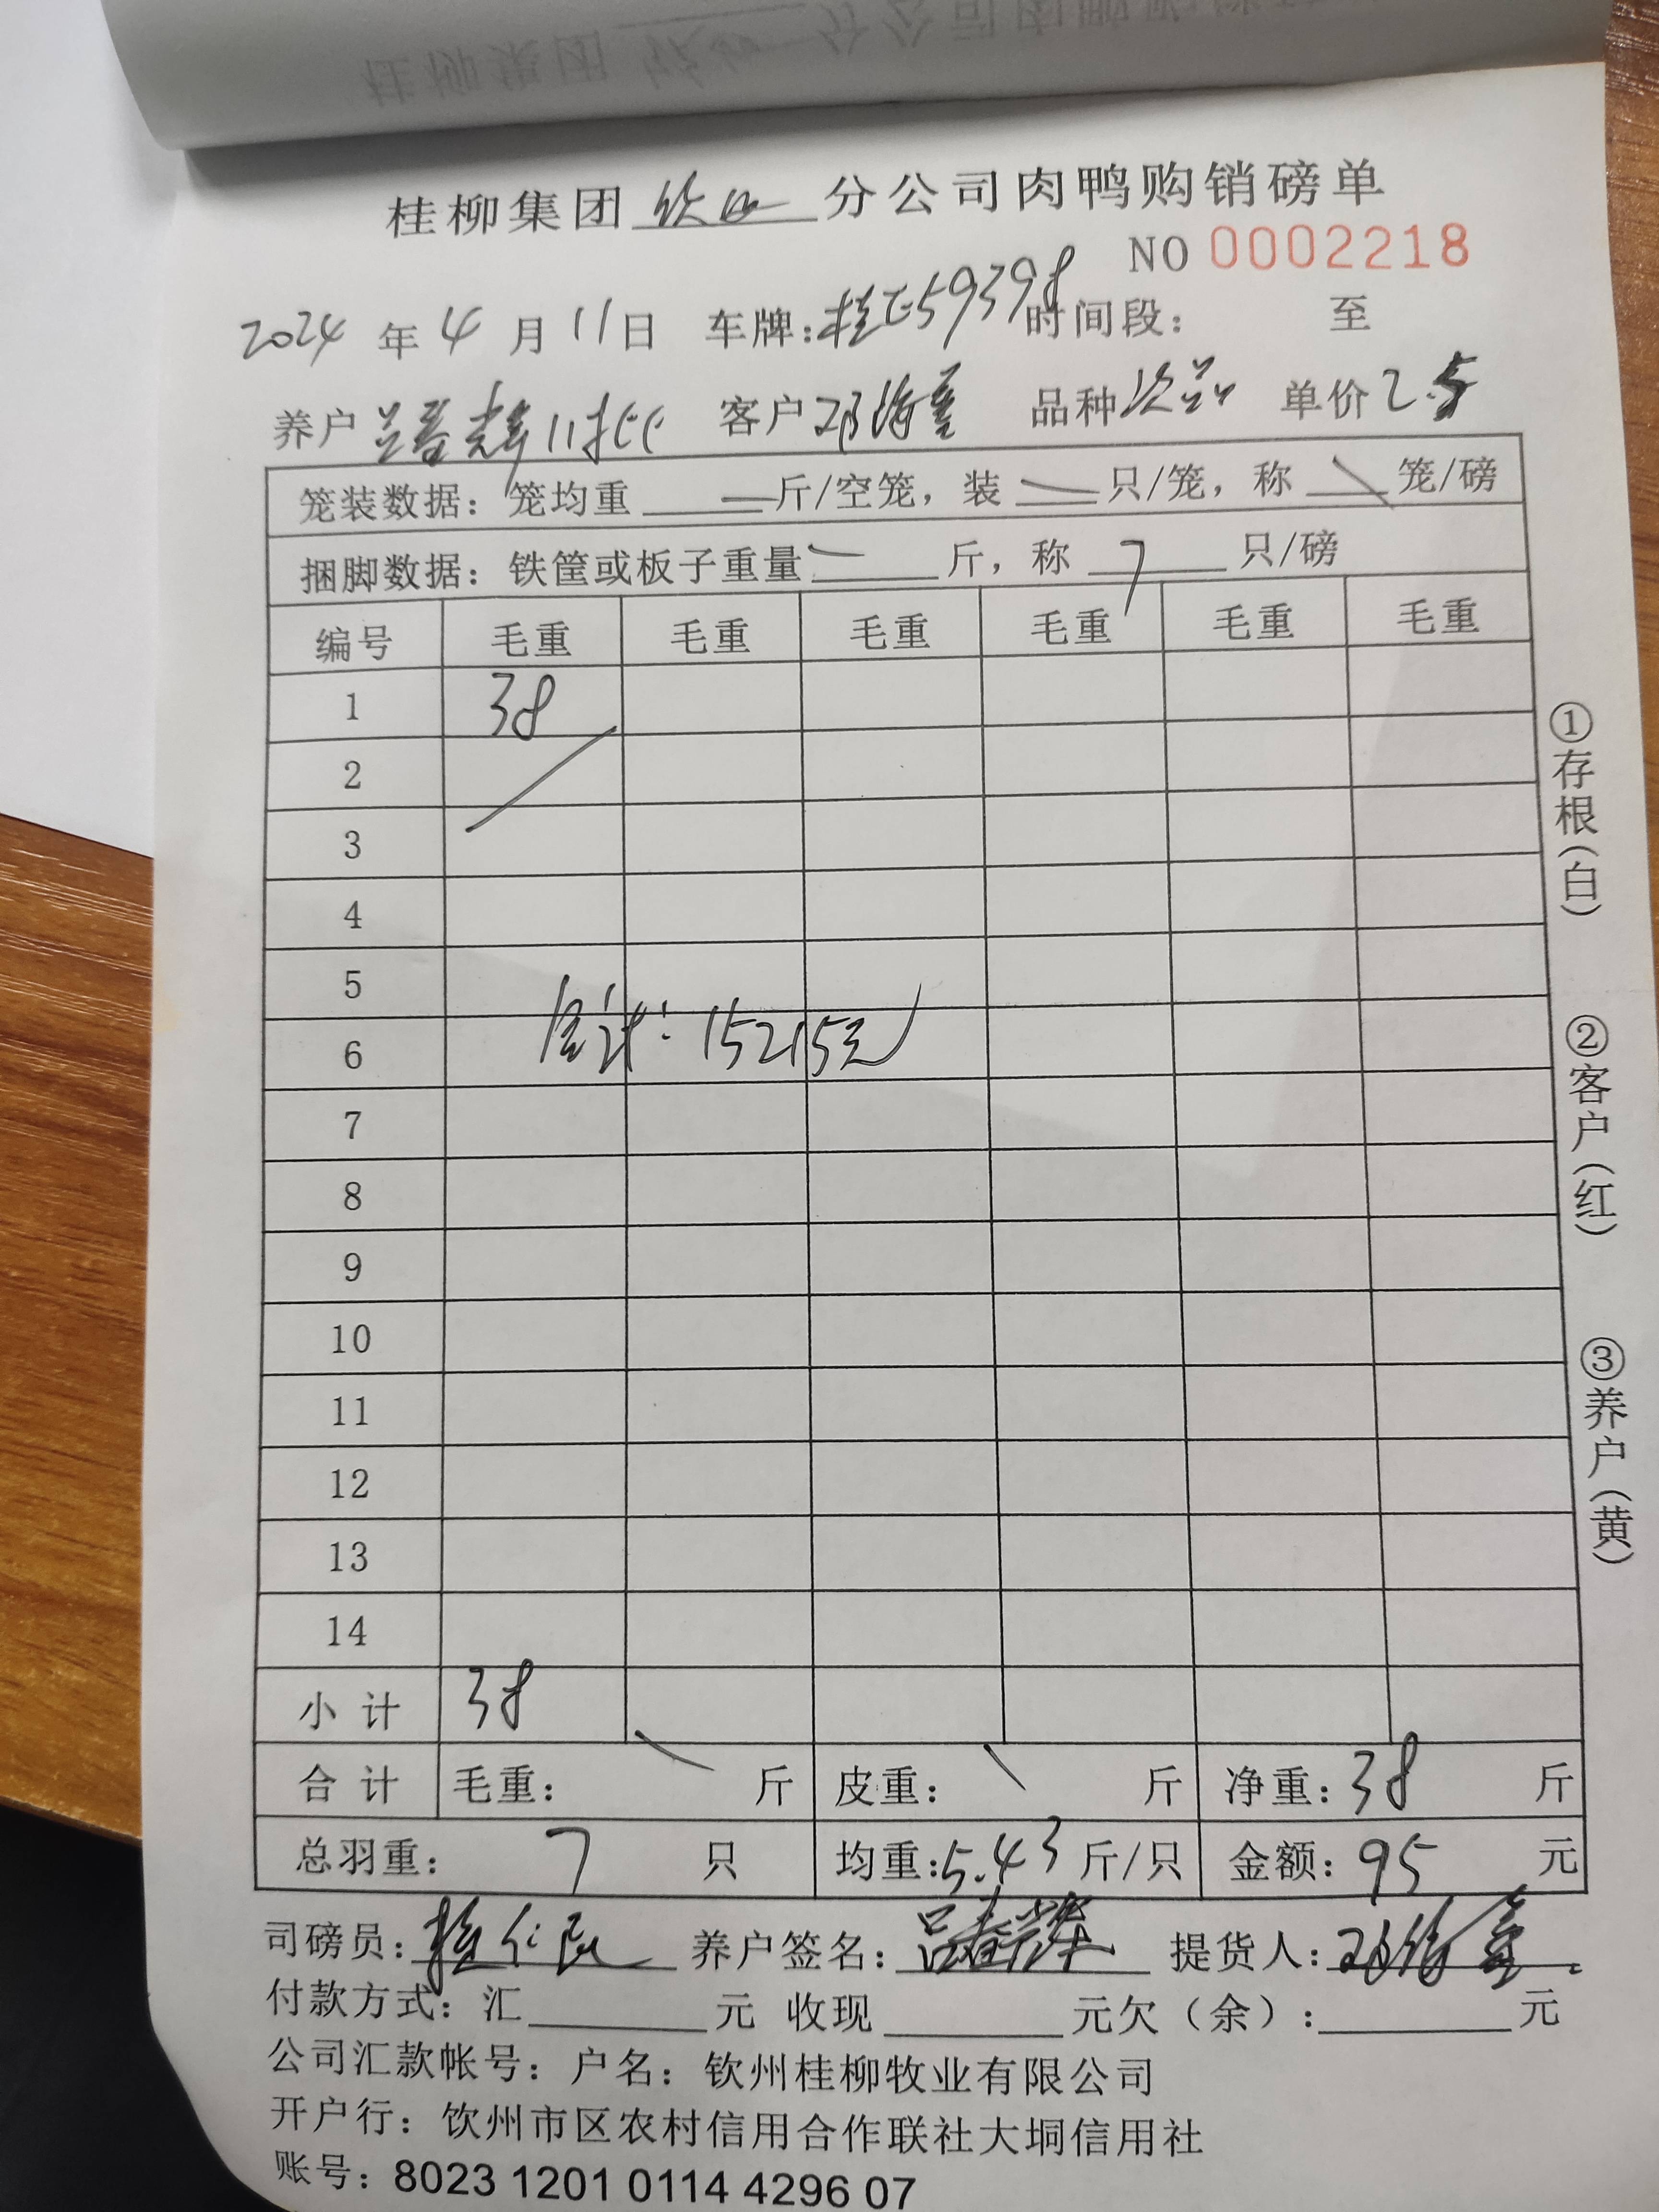 桂柳集团 钦州 分公司肉鸭购销磅单
NO 0002218
2024 年 4 月 11 日 车牌: 桂E59398 时间段: 至
养户 吕春辉11批 客户 邓海 品种 次品 单价 2.5
笼装数据: 笼均重 — 斤/空笼, 装 — 只/笼, 称 — 笼/磅
捆脚数据: 铁筐或板子重量 — 斤, 称 7 只/磅
编号 毛重 毛重 毛重 毛重 毛重 毛重
1 38
2
3
4
5
合计: 15215元
6
7
8
9
10
11
12
13
14
小计 38
合计 毛重: 斤 皮重: 斤 净重: 38 斤
总羽重: 7 只 均重: 5.43 斤/只 金额: 95 元
司磅员: 养户签名: 吕春辉 提货人: 邓海
付款方式: 汇 元 收现 元欠(余): 元
公司汇款帐号: 户名: 钦州桂柳牧业有限公司
开户行: 钦州市区农村信用合作联社大垌信用社
账号: 8023 1201 0114 4296 07
①存根(白)
②客户(红)
③养户(黄)